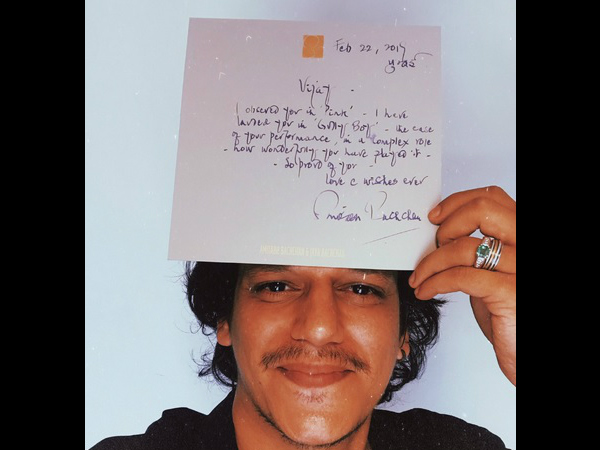 Feb 22, 2019
मुंबई
Vijay -
I observed you in 'Pink' - I have
lauded you in 'Gully Boy' - the ease
of your performance, in a complex role
- how wonderfully you have played it -
- So proud of you -
love & wishes ever
Amitabh Bachchan